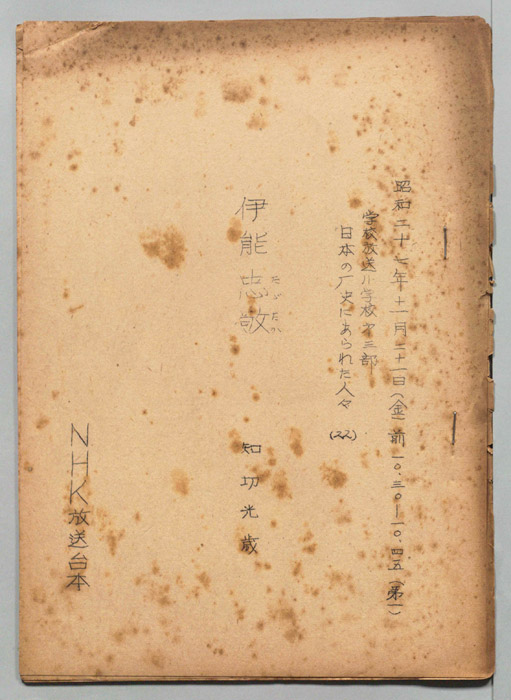 昭和二十七年十一月二十一日(金)前一〇.三〇―一〇.四五(第一)
学校放送小学校才三部
日本の厂史にあらわれた人々
(22)
伊能忠敬
ただたか
知切光歳
NHK放送台本